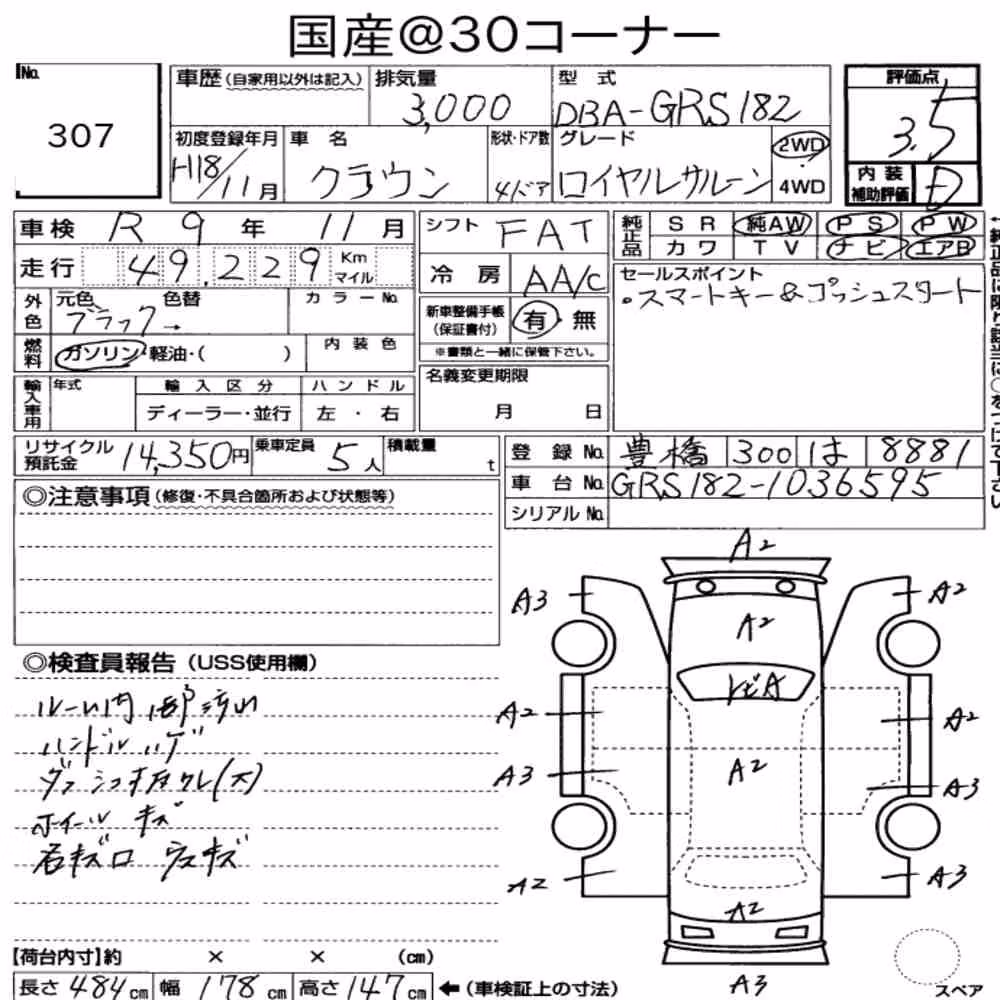 国産@30コーナー
No.
307
車歴(自家用以外は記入)
排気量
3,000
型式
DBA-GRS182
評価点
3.5
初度登録年月
H18/11月
車名
クラウン
形状・ドア数
4ドア
グレード
ロイヤルサルーン
2WD
4WD
内装
補助評価
D
車検 R 9 年 11 月
シフト
FAT
純正品
SR 純AW PS PW
カワ TV ナビ エアB
走行 49,229 Km マイル
冷房
AA/C
セールスポイント
・スマートキー&プッシュスタート
外色
元色 色替
ブラック→
カラーNo.
新車整備手帳
(保証書付)
有・無
燃料
ガソリン・軽油・( )
内装色
※書類と一緒に保管下さい。
輸入車用
年式
輸入区分
ディーラー・並行
ハンドル
左・右
名義変更期限
月 日
リサイクル
預託金
14,350円
乗車定員
5人
積載量
t
登録No.
豊橋 300 は 8881
車台No.
GRS182-1036595
シリアルNo.
◎注意事項(修復・不具合箇所および状態等)
◎検査員報告(USS使用欄)
ハンドルハゲ
ホイール キズ
A2
A3 A2
A2
トビA
A2 A2
A2
A3 A3
A2 A3
A2
A3
【荷台内寸】約 × × (cm)
長さ 484cm 幅 178cm 高さ 147cm ←(車検証上の寸法)
スペア